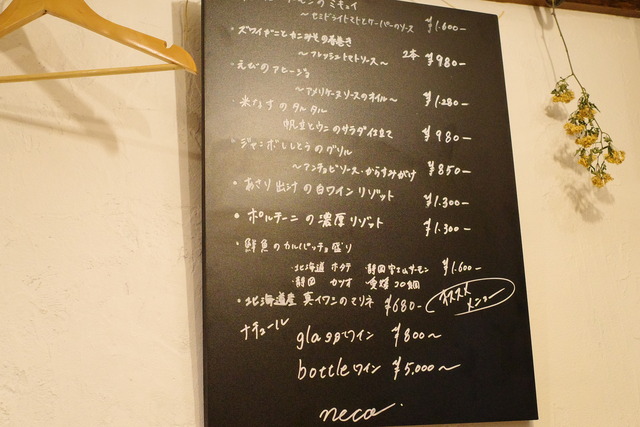 ーモンのミキュイ
〜セミドライトマトとケーパーのソース ¥1.600-
・ズワイガニとカニみその春巻き
〜フレッシュトマトソース〜 2本 ¥980-
・えびのアヒージョ
〜アメリケーヌソースのオイル〜 ¥1.280-
・米なすのタルタル
帆立とウニのサラダ仕立て ¥980-
・ジャンボししとうのグリル
〜アンチョビソース・からすみがけ ¥850-
・あさり出汁の白ワインリゾット ¥1.300-
・ポルチーニの濃厚リゾット ¥1.300-
・鮮魚のカルパッチョ盛り
・北海道 ホタテ ・静岡 サーモン ¥1.600-
・静岡 カツオ ・愛媛
・北海道産 真イワシのマリネ ¥680- オススメ
メニュー
ナチュール
glassワイン ¥800〜
bottleワイン ¥5,000〜
neco.